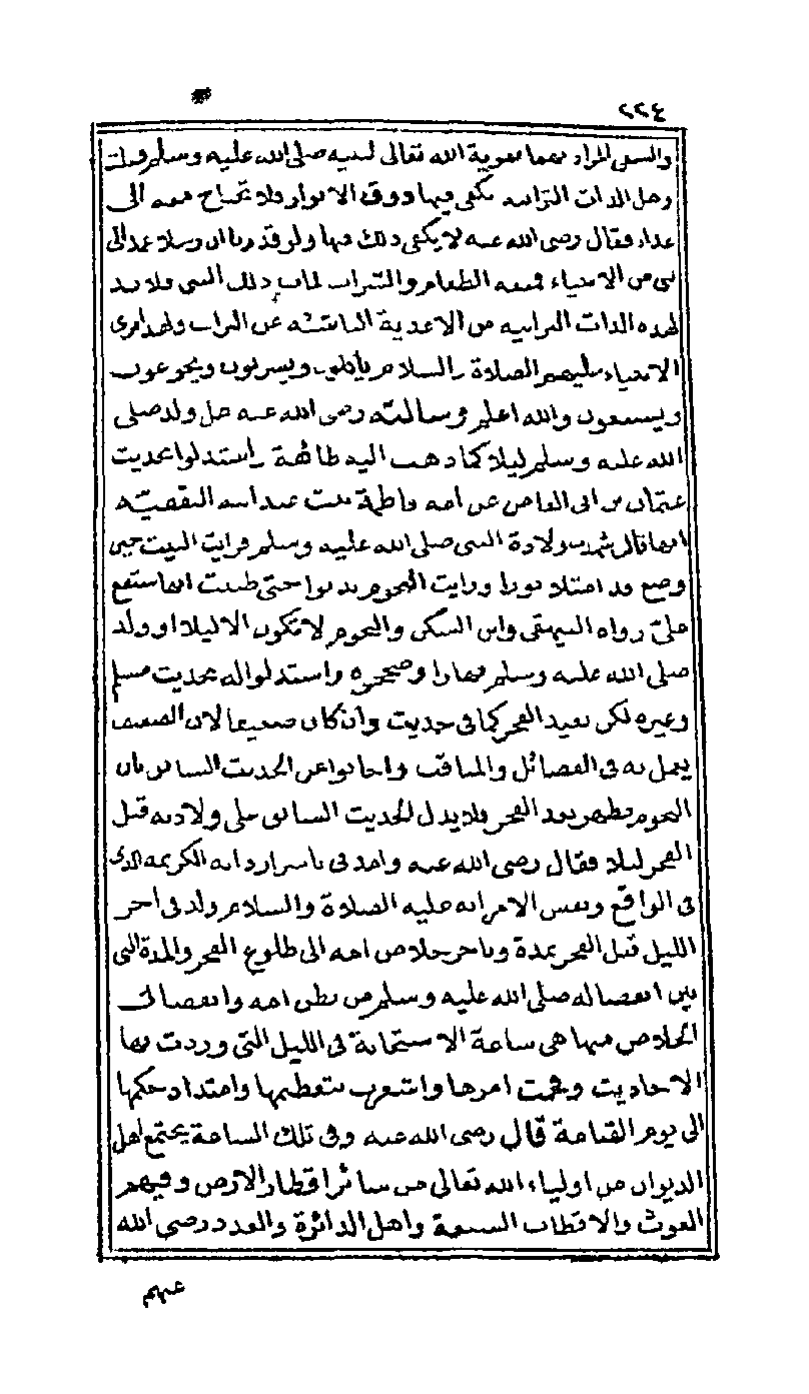 ٢٢٤
والسقى المراد بهما تقوية الله تعالى لنبيه صلى الله عليه وسلم فقلت
وهل الذات الترابية تكفى فيها ذوق الانوار فلا تحتاج معه الى
غذاء فقال رضى الله عنه لا يكفى ذلك فيها ولو قدرنا ان رسلا عمد الى
نبى من الانبياء فمنعه الطعام والشراب لمات ذلك النبى فلا بد
لهذه الذات الترابية من الاغذية الناشئة عن التراب ولهذا ترى
الانبياء عليهم الصلاة والسلام ياكلون ويشربون ويجوعون
ويشبعون والله اعلم وسالته رضى الله عنه هل ولد صلى
الله عليه وسلم ليلا كما ذهب اليه طائفة واستدلوا بحديث
عثمان بن ابى العاص عن امه فاطمة بنت عبد الله الثقفية
انها قال شهدت ولادة النبى صلى الله عليه وسلم فرايت البيت حين
وضع قد امتلا نورا ورايت النجوم تدنوا حتى ظننت انها ستقع
علىّ رواه البيهقى وابن السكن والنجوم لا تكون الا ليلا او ولد
صلى الله عليه وسلم نهارا وصححوه واستدلوا له بحديث مسلم
وغيره لكن بعيد الفجر كما فى حديث وان كان ضعيفا لان الضعيف
يعمل به فى الفضائل والمناقب واجابوا عن الحديث السابق بان
النجوم تظهر بعد الفجر فلا يدل الحديث السابق على ولادته قبل
الفجر ليلا فقال رضى الله عنه وامدنى باسرار ذاته الكريمة الذى
فى الواقع ونفس الامر انه عليه الصلاة والسلام ولد فى اخر
الليل قبل الفجر بمدة وتاخر خلاص امه الى طلوع الفجر والمدة التى
بين انفصاله صلى الله عليه وسلم من بطن امه وانفصال
الخلاص منها هى ساعة الاستجابة فى الليل التى وردت بها
الاحاديث وفخمت امرها واشعرت بتعظيمها وامتداد حكمها
الى يوم القيامة قال رضى الله عنه وفى تلك الساعة يجتمع اهل
الديوان من اولياء الله تعالى من سائر اقطار الارض وفيهم
الغوث والاقطاب السبعة واهل الدائرة والعدد رضى الله
عنهم